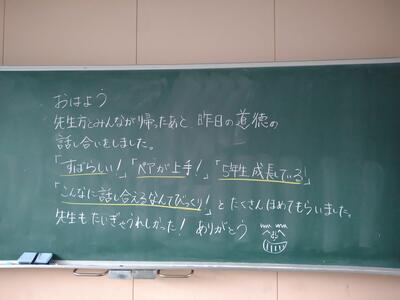 おはよう
先生方とみんなが帰ったあと、昨日の道徳の
話し合いをしました。
「すばらしい!」「ペアが上手!」「5年生成長している」
「こんなに話し合えるなんてびっくり!」とたくさんほめてもらいました。
先生もたいぎゃうれしかった! ありがとう